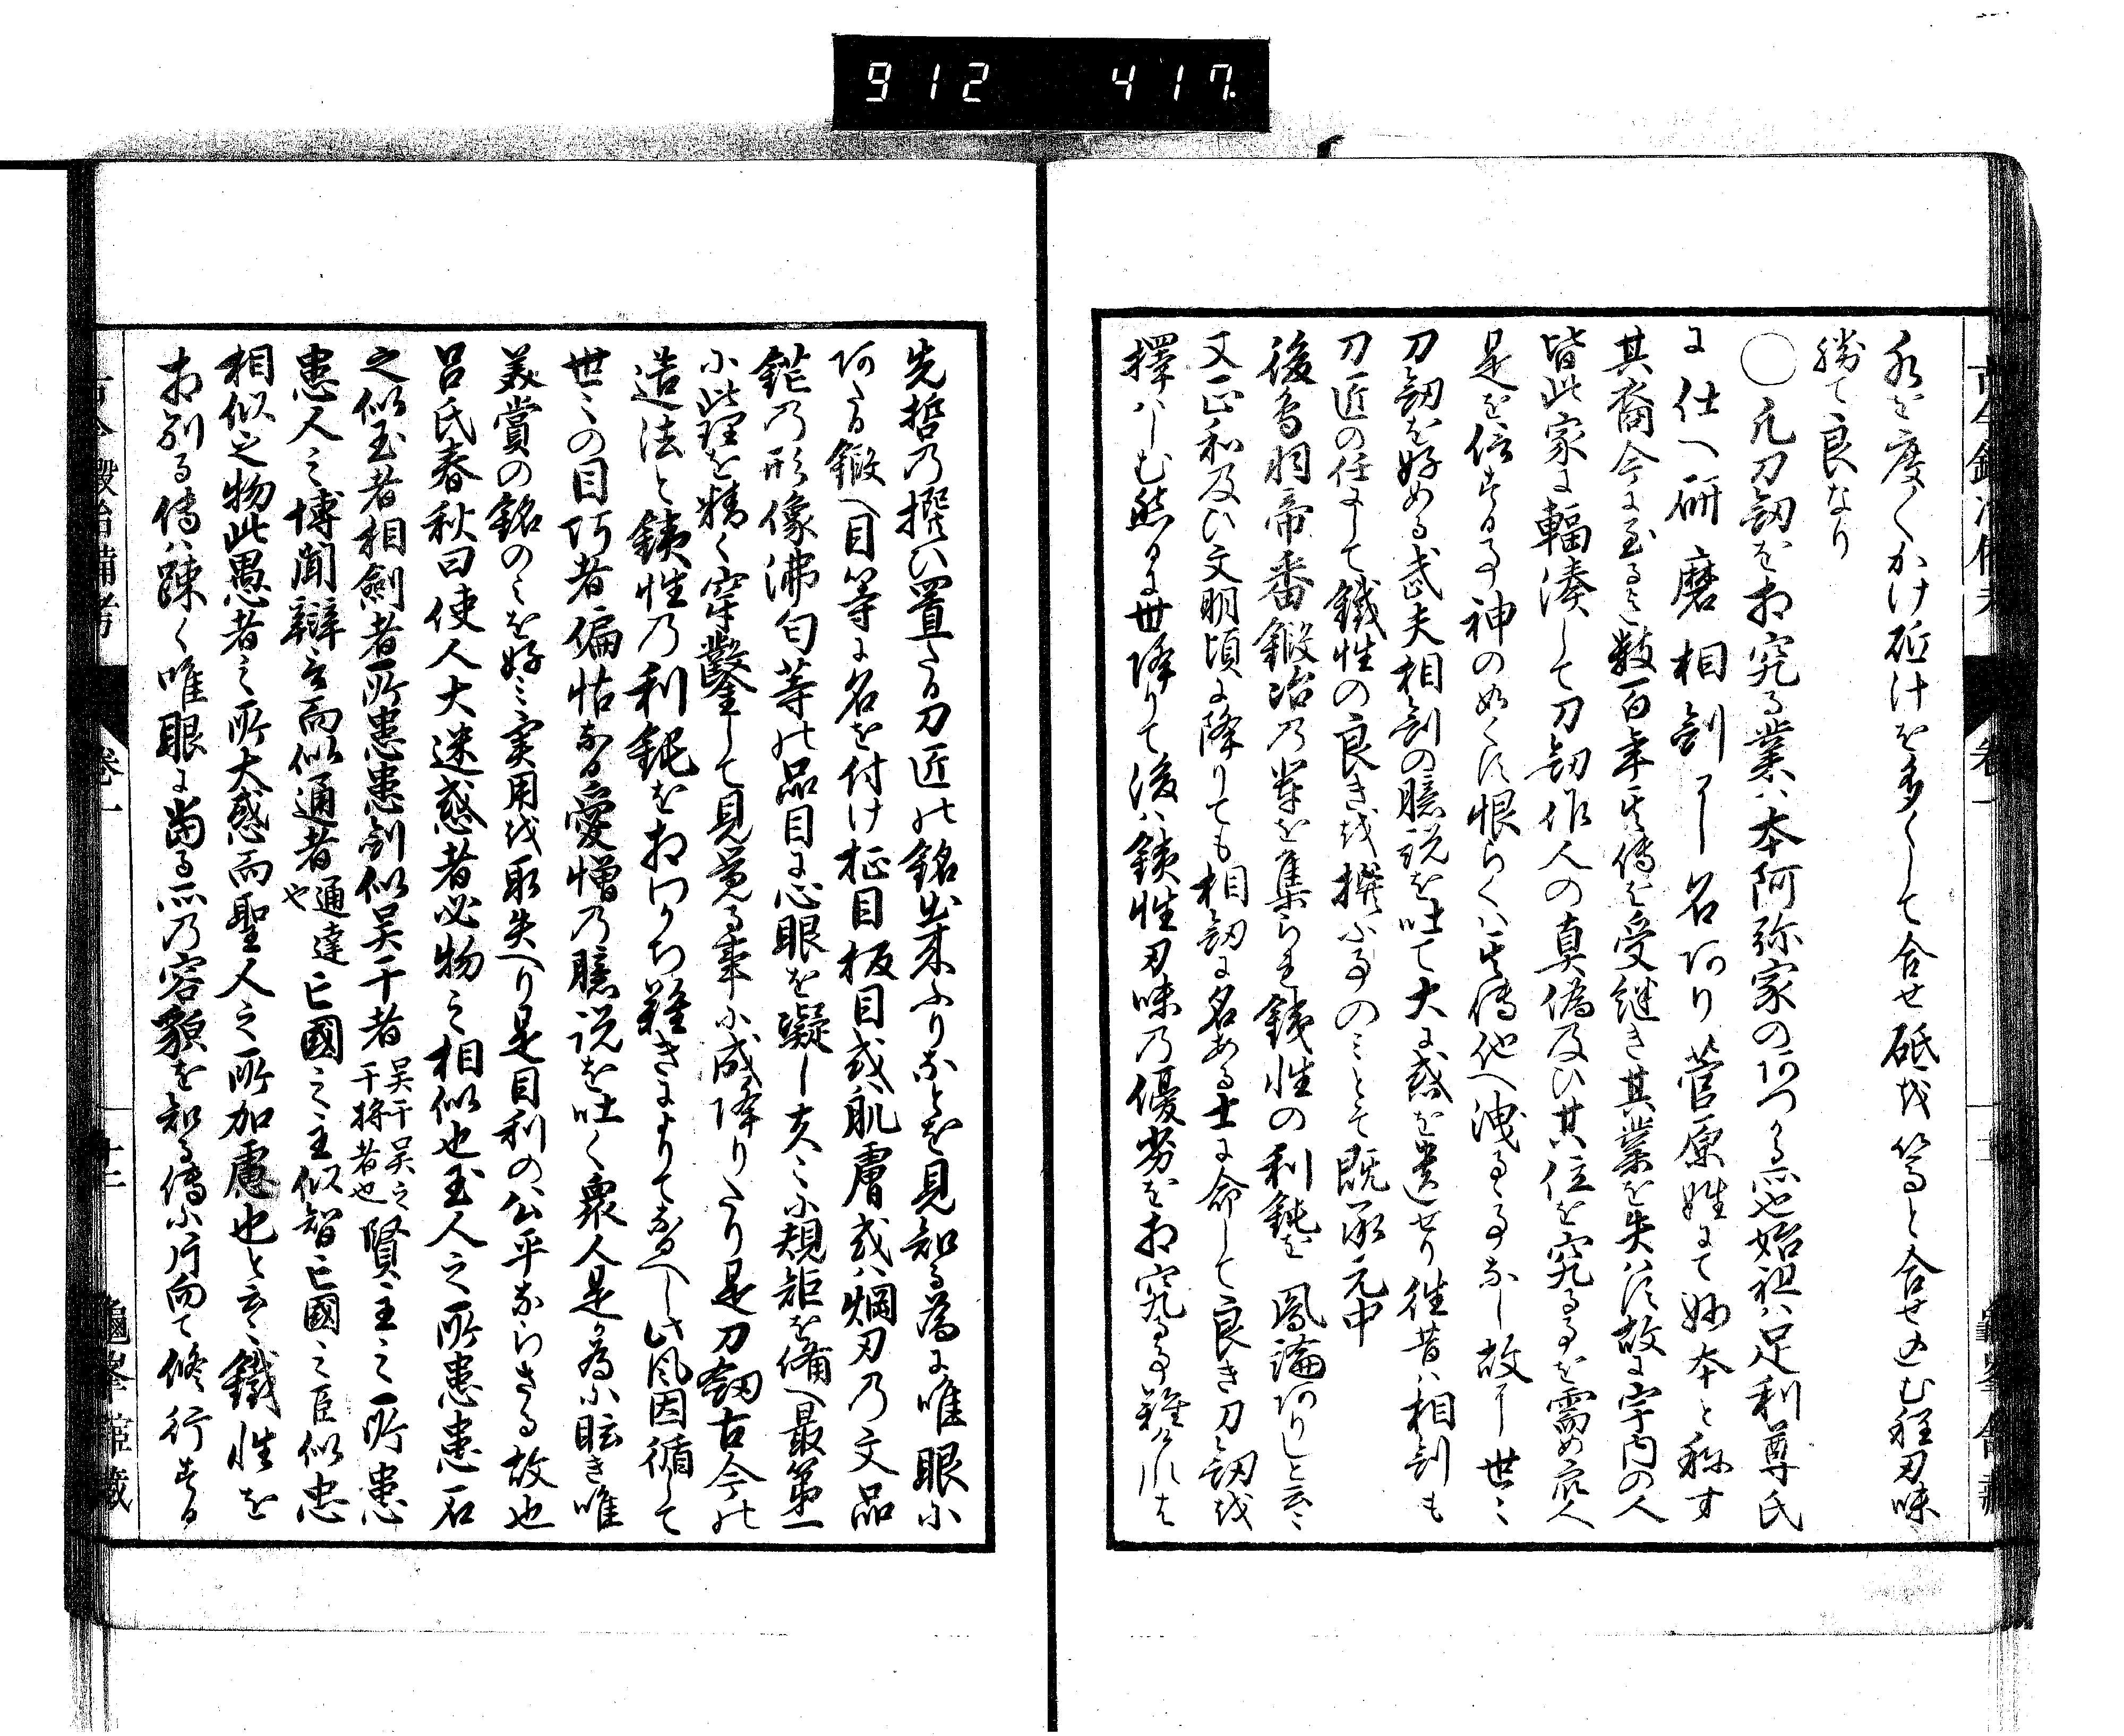 912 417
水を度〻かけ砥汁を多くして合せ砥にて篤と合せ込む程刃味
勝て良なり
○凡刀劔を相究る業ハ本阿弥家の所也始祖ハ足利尊氏
に仕へ研磨相劔に名あり菅原姓にて妙本と称す
其裔今に至るまて数百年其傳を受継き其業を失ハす故に宇内の人
皆此家に輻湊して刀劔作人の真偽及ひ其位を究る事を需め衆人
是を信する事神の如く然れ恨らくハ其傳他へ洩るゝ事なし故に世〻
刀劔を好める武夫相劔の臆説を吐て大に惑を遺せり往昔ハ相劔も
刀匠の任にして鐵性の良きを撰ふ事のミとそ既承元中
後鳥羽帝番鍛冶の輩を集られ鐵性の利鈍を鳳論ありしと云〻
又正和及ひ文明頃に降りても相劔に名ある士に命して良き刀劔を
擇ハしむ然るに世降りて後ハ鐵性刃味の優劣を相究る事難けれは
卷一
先哲の撰ひ置たる刀匠の銘柴ふりなとを見知る為に唯眼に
ある鍛へ目等に名を付け柾目板目或肌膚或ハ燗刃の文品
鋩の形像沸匂等の品目に心眼を凝し夫〻に規矩を備へ最第一
に此理を精く穿鑿して見覚る事に成降りたり是刀劔古今の
造法と鐵性の利鈍を相わかち難きによりてなるへし此風因循して
世〻の目阿者偏怙なる愛憎の臆説を吐く衆人是か為に眩き唯
美賞の銘のミを好ミ実用を取失へり是目利の公平ならさる故也
呂氏春秋曰使人大迷惑者必物之相似也玉人之所患患石
之似玉者相劍者所患患劍似吴干者吴干吴之干将者也賢主之所患
患人之博聞辯言而似通者通達也亡國之主似智亡國之臣似忠
相似之物此愚者之所大惑而聖人之所加慮也と云〻鐵性を
相別る傳ハ踈く唯眼に當る所の容貌を知る傳に片向て修行する
古今鍛冶備考
卷一
龜峯館藏